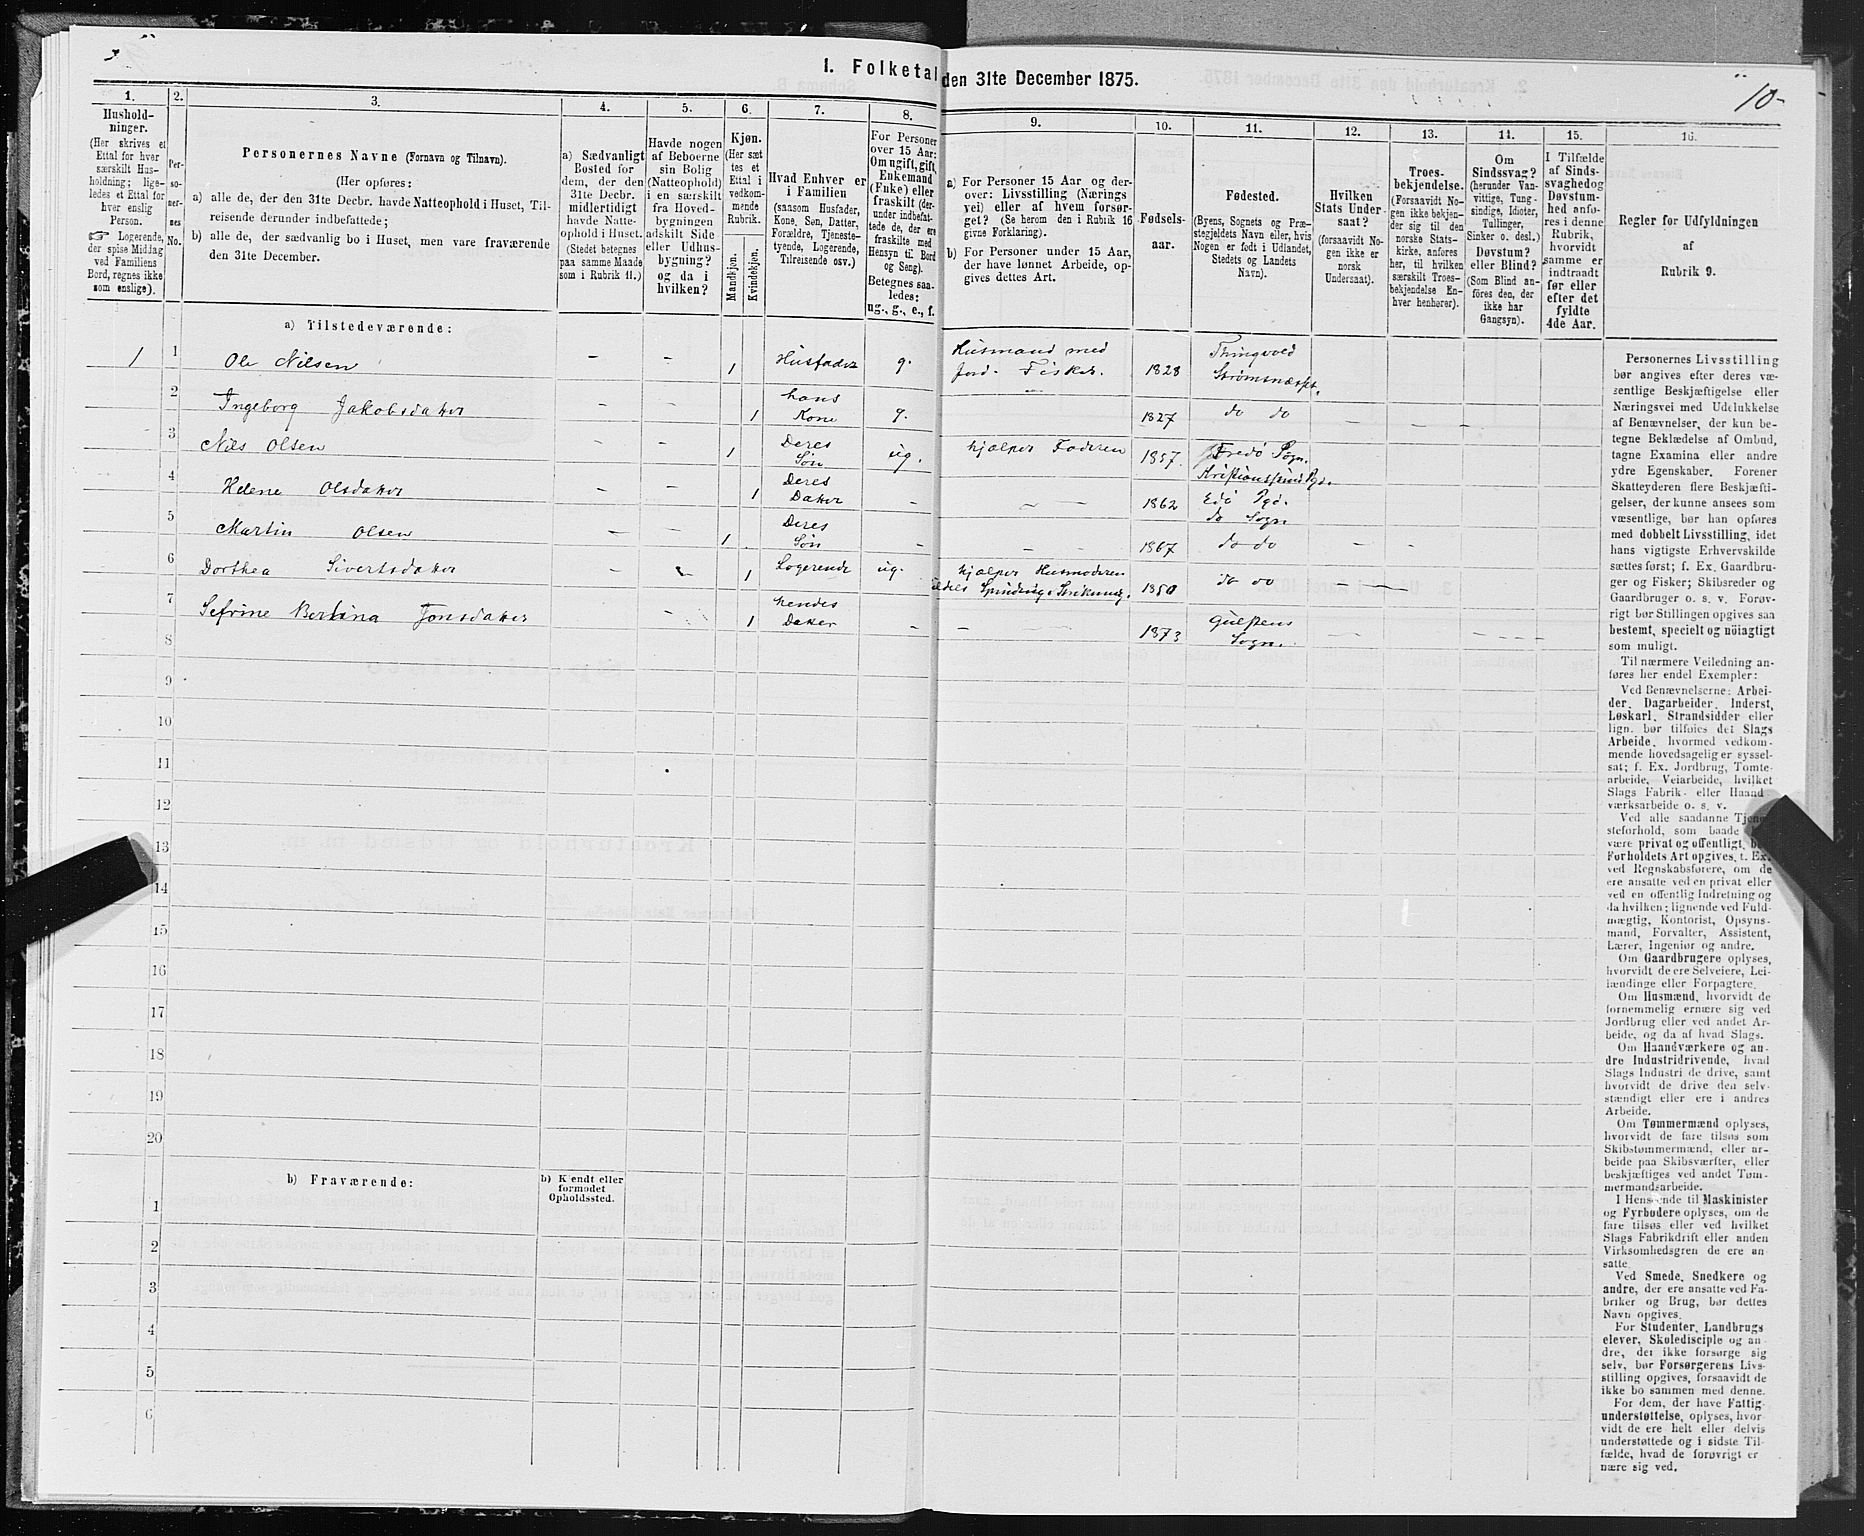 1. Folketal den 31te December 1875.
10
1.
Hushold-
ninger.
(Her skrives et
Ettal for hver
særskilt Hus-
holdning; lige-
ledes et Ettal for
hver enslig
Person.
☞ Logerende,
der spise Middag
ved Familiens
Bord, regnes ikke
som enslige).
2.
Per-
so-
ner-
nes
No.
3.
Personernes Navne (Fornavn og Tilnavn).
(Her opføres:
a) alle de, der den 31te Decbr. havde Natteophold i Huset, Til-
reisende derunder indbefattede;
b) alle de, der sædvanlig bo i Huset, men vare fraværende
den 31te December.
4.
a) Sædvanligt
Bosted for
dem, der den
31te Decbr.
midlertidigt
havde Natte-
ophold i Huset.
(Stedet betegnes
paa samme Maade
som i Rubrik 11.)
5.
Havde nogen
af Beboerne
sin Bolig
(Natteophold)
i en særskilt
fra Hoved-
bygningen
adskilt Side
eller Udhus-
bygning?
og da i
hvilken?
6.
Kjøn.
(Her sæt
tes et
Ettal i
vedkom-
mende
Rubrik.
Mandkjøn.
Kvindekjøn.
7.
Hvad Enhver er
i Familien
(saasom Husfader,
Kone, Søn, Datter,
Forældre, Tjeneste-
tyende, Logrende,
Tilreisende osv.)
8.
For Personer
over 15 Aar:
Om ugift, gift,
Enkemand
(Enke) eller
fraskilt (der-
under indbefat-
tede de, der ere
fraskilte med
Hensyn til Bord
og Seng).
Betegnes saa-
ledes:
ug., g., e., f.
9.
a) For Personer 15 Aar og der-
over: Livsstilling (Nærings
vei) eller af hvem forsør-
get? (Se herom den i Rubrik 16
givne Forklaring).
b) For Personer under 15 Aar,
der have lønnet Arbeide, op-
gives dettes Art.
10.
Fødsels-
aar.
11.
Fødested.
(Byens, Sognets og Præ-
stegjeldets Navn eller, hvis
Nogen er født i Udlandet,
Stedets og Landets
Navn).
12.
Hvilken
Stats Under-
saat?
(forsaavidt No-
gen ikke er
norsk
Undersaat).
13.
Troes-
bekjendelse.
(Forsaavidt No-
gen ikke bekjen-
der sig til den
norske Stats-
kirke, anføres
her, til hvilken
særskilt Troes-
bekjendelse En-
hver henhører).
14.
Om
Sindssvag?
(herunder Van-
vittige, Tung-
sindige, Idioter,
Tullinger,
Sinker o. desl.)
Døvstum?
eller Blind?
(Som Blind an-
føres den, der
ikke har
Gangsyn).
15.
I Tilfælde
af Sinds-
svaghedog
Døvstum-
hed anfø-
res i denne
Rubrik,
hvorvidt
samme er
indtraadt
før eller
efter det
fyldte
4de Aar.
16.
Regler for Udfyldningen
af
Rubrik 9.
a) Tilstedeværende:
1 1 Ole Nilsen – – 1 Husfader g. Husmand med Jord. Fisker. 1828 Thingvold Strømsnæsset.
2 Ingeborg Jakobsdatter – – 1 hans Kone g. – 1827 do do – – –
3 Nils Olsen – – 1 Deres Søn ug. hjælper Faderen 1857. Fredø Sogn. Kristianssund Pgd.
4 Helene Olsdatter – – 1 Deres Datter – – – 1862 Edø Pgd. do Sogn
5 Martin Olsen – – 1 Deres Søn – – – 1867 do do – –
6 Dorthea Sivertsdatter – – 1 Logerende ug. hjælper Husmoderen Spinding & Strikning. 1850 do do – – –
7 Sefrine Bertina Jonsdatter – – 1 hendes Datter – – – – 1873 Sogn. – – – – – –
8
9
10
11
12
13
14
15
16
17
18
19
20
b) Fraværende:
b) Kjendt eller
formodet
Opholdssted.
1
2
3
4
5
6
Personernes Livsstilling
bør angives efter deres væ-
sentlige Beskjæftigelse eller
Næringsvei med Udelukkelse
af Benævnelser, der kun be-
tegne Beklædelse af Ombud,
tagne Examina eller andre
ydre Egenskaber. Forener
Skatteyderen flere Beskjæfti-
gelser, der kunne ansees som
væsentlige, bør han opføres
med dobbelt Livsstilling, idet
hans vigtigste Erhvervskilde
sættes først; f. Ex. Gaardbru-
ger og Fisker; Skibsreder og
Gaardbruger o. s. v. Forøv-
rigt bør Stillingen opgives saa
bestemt, specielt og nöiagtigt
som muligt.
Til nærmere Veiledning an-
føres her endel Exempler:
Ved Benævnelserne: Arbei-
der, Dagarbeider, Inderst,
Løskarl, Strandsidder eller
lign. bør tilføies det Slags
Arbeide, hvormed vedkom-
mende hovedsagelig er syssel-
sat; f. Ex. Jordbrug, Tomte-
arbeide, Veiarbeide, hvilket
Slags Fabrik- eller Haand-
værksarbeide o. s. v.
Ved alle saadanne Tjene-
steforhold, som baade
være privat og offentligt, bør
Forholdets Art opgives, f. Ex.
ved Regnskabsførere, om de
ere ansatte ved en privat eller
ved en offentlig Indretning og
da hvilken; lignende ved Fuld-
mægtig, Kontorist, Opsyns-
mand, Forvalter, Assistent,
Lærer, Ingeniør og andre.
Om Gaardbrugere oplyses,
hvorvidt de ere Selveiere, Lei-
lændinge eller Forpagtere.
Om Husmænd, hvorvidt de
fornemmelig ernære sig ved
Jordbrug eller ved andet Ar-
beide, og da af hvad Slags.
Om Haandværkere og an-
dre Industridrivende, hvad
Slags Industri de drive, samt
hvorvidt de drive den selv-
stændigt eller ere i andres
Arbeide.
Om Tømmermænd oplyses,
hvorvidt de fare tilsøs som
Skibstømmermænd, eller ar-
beide paa Skibsværfter, eller
beskjæftiges ved andet Tøm-
mermandsarbeide.
I Henseende til Maskinister
og Fyrbødere oplyses, om de
fare tilsøs eller ved hvilket
Slags Fabrikdrift eller anden
Virksomhedsgren de ere an-
satte.
Ved Smede, Snedkere og
andre, der ere ansatte ved Fa-
briker og Brug, bør dettes
Navn opgives.
For Studenter, Landbrugs
elever, Skoledisciple og an-
dre, der ikke forsørge sig
selv, bør Forsørgerens Livs-
stilling opgives, forsaavidt de
ikke bo sammen med denne.
For dem, der have Fattig-
understøttelse, oplyses, hvor-
vidt de ere helt eller delvis
understøttede og i sidste Til-
fælde, hvad de forøvrigt er
nære sig ved.